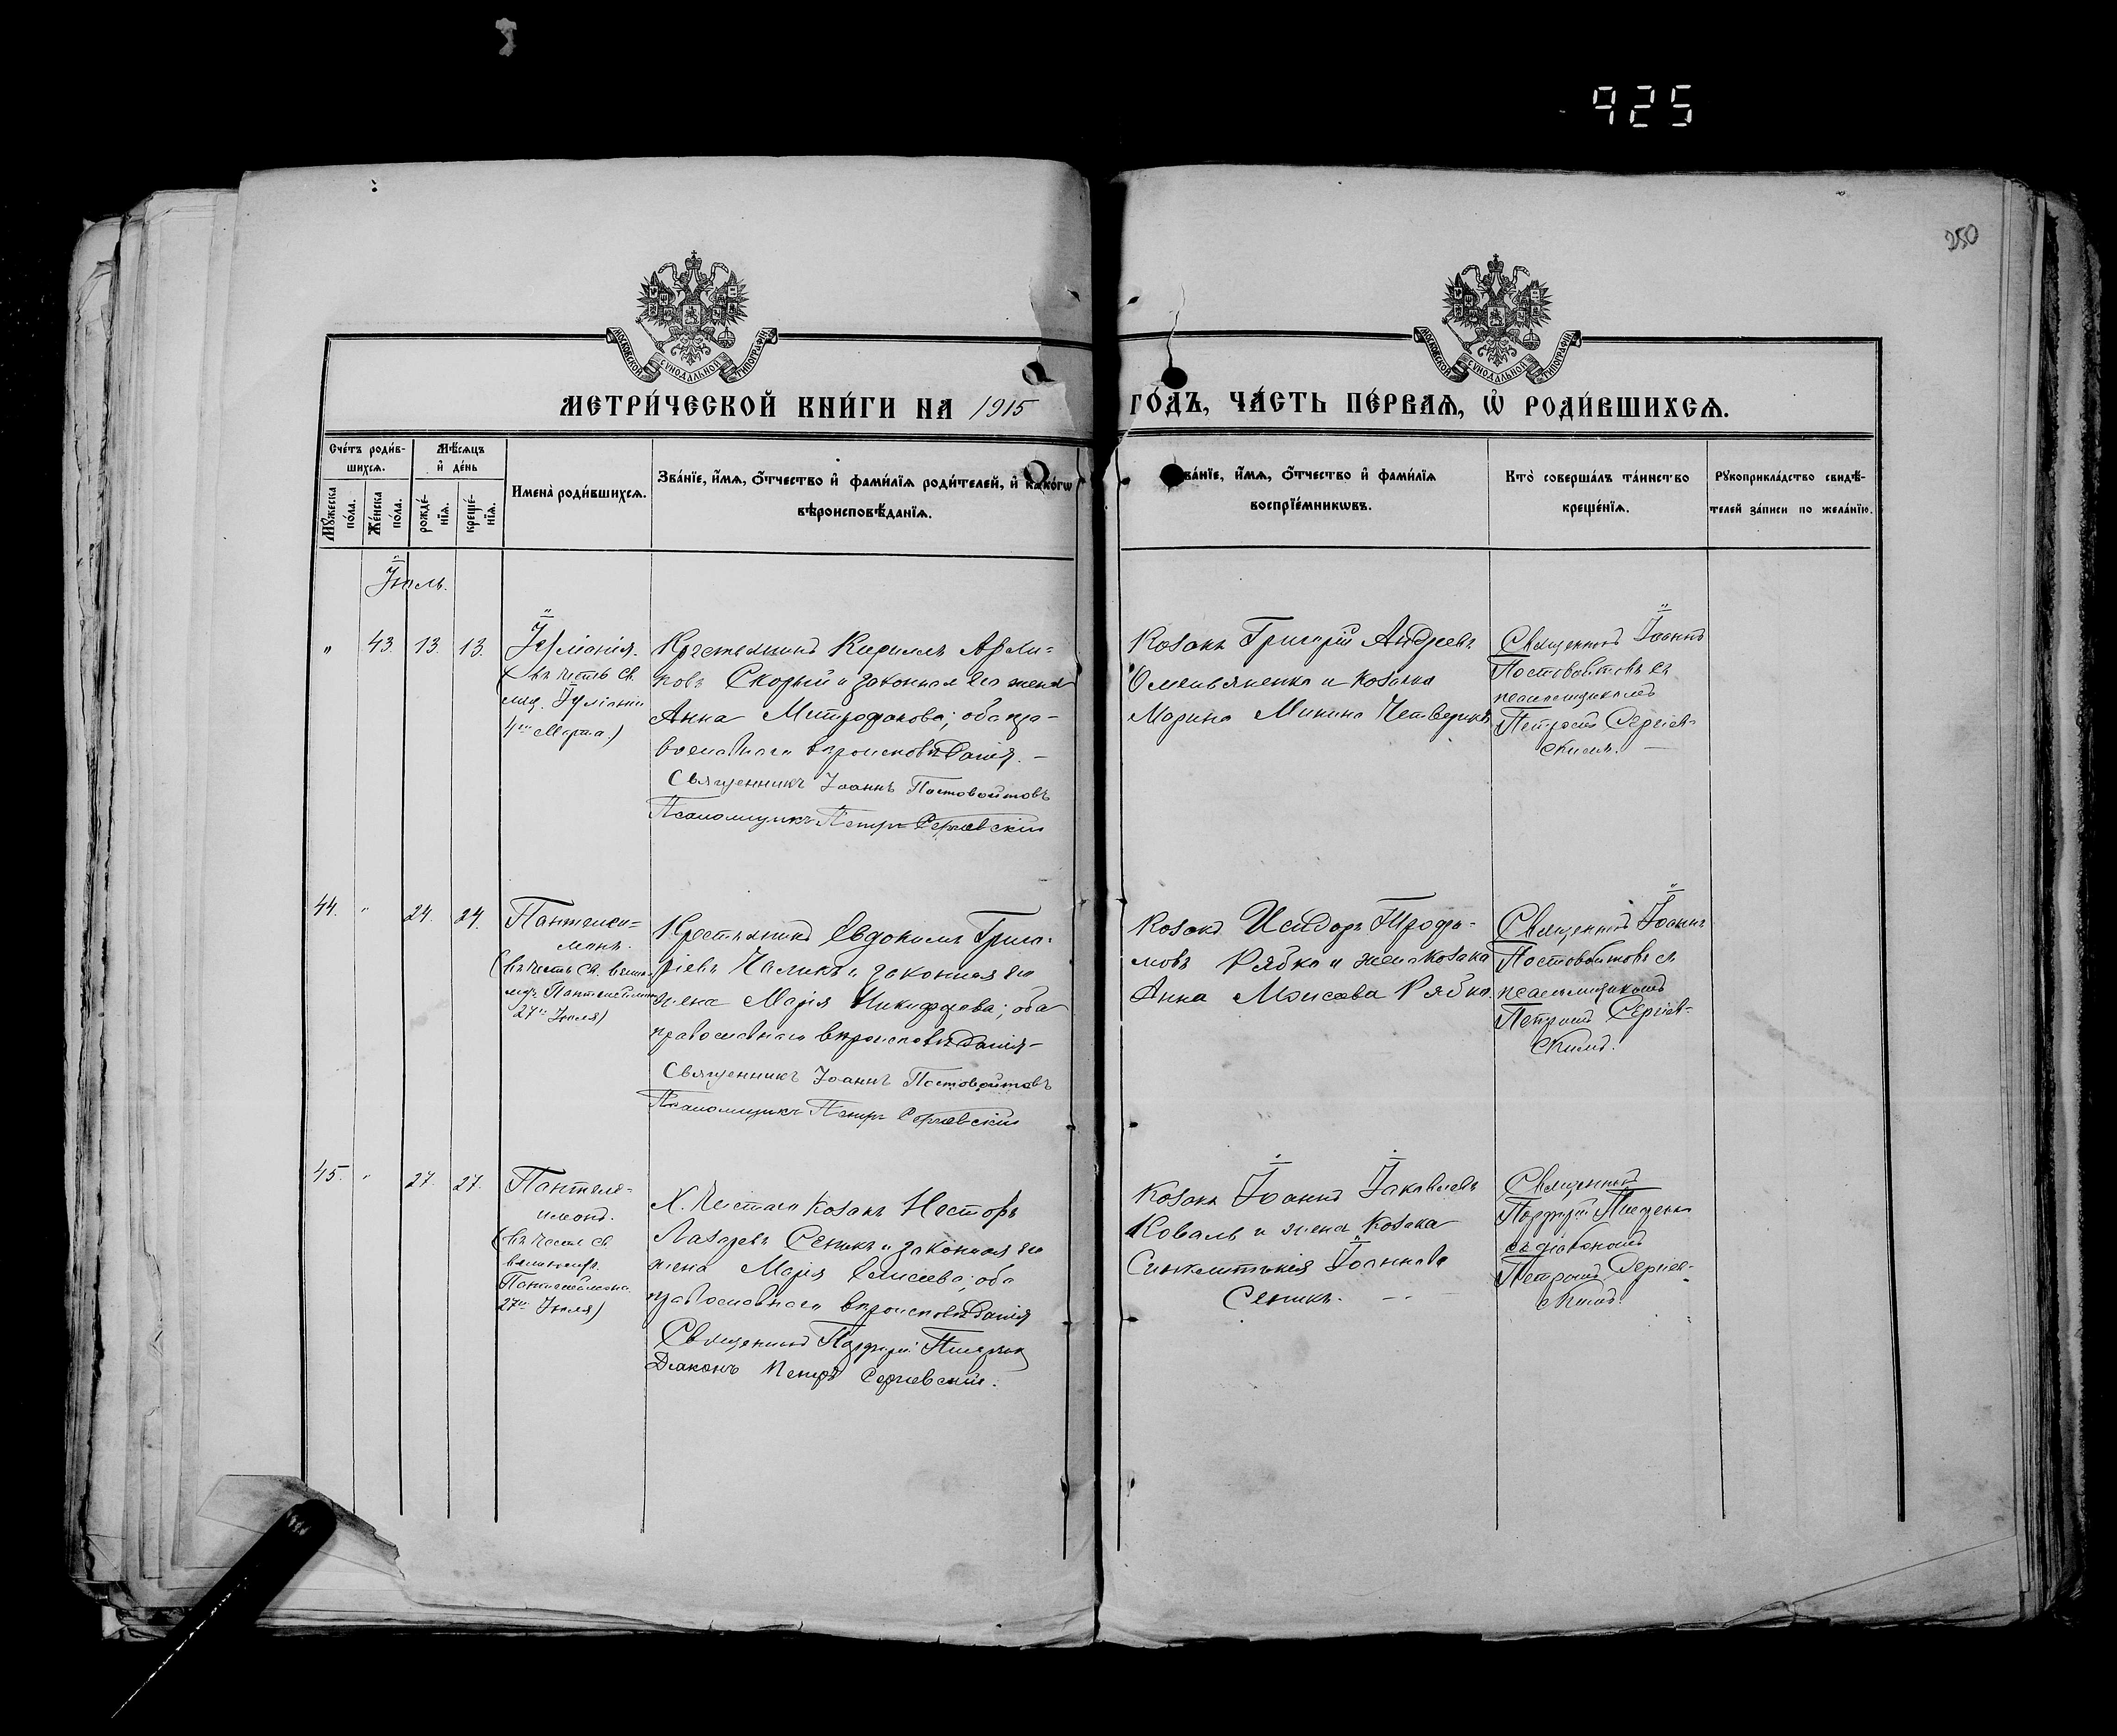 925
250
МОСКОВСКОЙ СѴНОДАЛЬНОЙ ТИПОГРАФІИ
МОСКОВСКОЙ СѴНОДАЛЬНОЙ ТИПОГРАФІИ
МЕТРИ́ЧЕСКОЙ КНИ́ГИ НА 1915
ГО́ДЪ, ЧА́СТЬ ПЕ́РВАѦ, Ѡ҆ РОДИ́ВШИХСѦ.
Сче́тъ роди́в-
шихсѧ.
Мѣ́сѧцъ
и҆ де́нь
Мꙋ́жеска
по́ла.
Же́нска
по́ла.
рожде́-
нїѧ.
креще́-
нїѧ.
Имена̀ роди́вшихсѧ.
Зва́нїе, и҆́мѧ, ѻ҆́тчество и҆ фами́лїѧ роди́телей, и҆ како́гѡ
вѣроисповѣ́данїѧ.
ва́нїе, и҆́мѧ, ѻ҆́тчество и҆ фами́лїѧ
воспрїе́мникѡвъ.
Кто̀ соверша́лъ та́инство
креще́нїѧ.
Рꙋкоприкла́дство свидѣ́-
телей за́писи по жела́нїю.
Іюль.
" 43. 13. 13.
Іуліанія.
(въ честь св.
муч. Іуліаніи
4го Марта.)
Крестьянинъ Кириллъ
Скорый и законная его жена
Анна Митрофанова; оба пра-
вославнаго вѣроисповѣданія. —
Священникъ Іоаннъ Постовойтовъ
Псаломщикъ Петръ Сергіевскій
Козакъ Григорій Андреевъ
Омельяненко и козачка
Марина Минина
Священникъ Іоаннъ
Постовойтовъ съ
псаломщикомъ
Петромъ Сергіев-
скимъ. —
44. " 24. 24.
Пантелеи-
монъ.
(въ честь св. велик.
муч. Пантелеимона
27го Іюля)
Крестьянинъ Евдокимъ Григо-
ріевъ и законная его
жена Марія Никифорова; оба
православнаго вѣроисповѣданія —
Священникъ Іоаннъ Постовойтовъ
Псаломщикъ Петръ Сергіевскій
Козакъ Исидоръ Трофи-
мовъ Рябко и жена козака
Анна Моисеева Рябко.
Священникъ Іоаннъ
Постовойтовъ съ
псаломщикомъ
Петромъ Сергіев-
скимъ.
45. " 27. 27.
Пантеле-
имонъ.
(въ честь св.
великомуч.
Пантелеимона
27го Іюля)
Х. козакъ Несторъ
Лазаревъ Сеникъ и законная его
жена Марія Елисеева; оба
православнаго вѣроисповѣданія
Священникъ Порфирій
Діаконъ Петръ Сергіевскій.
Козакъ Іоаннъ Іаковлевъ
Коваль и жена козака
Синклитикія Іоаннова
Сеникъ. — . —
Священникъ
Порфирій
съ діакономъ
Петромъ Сергіев-
скимъ.